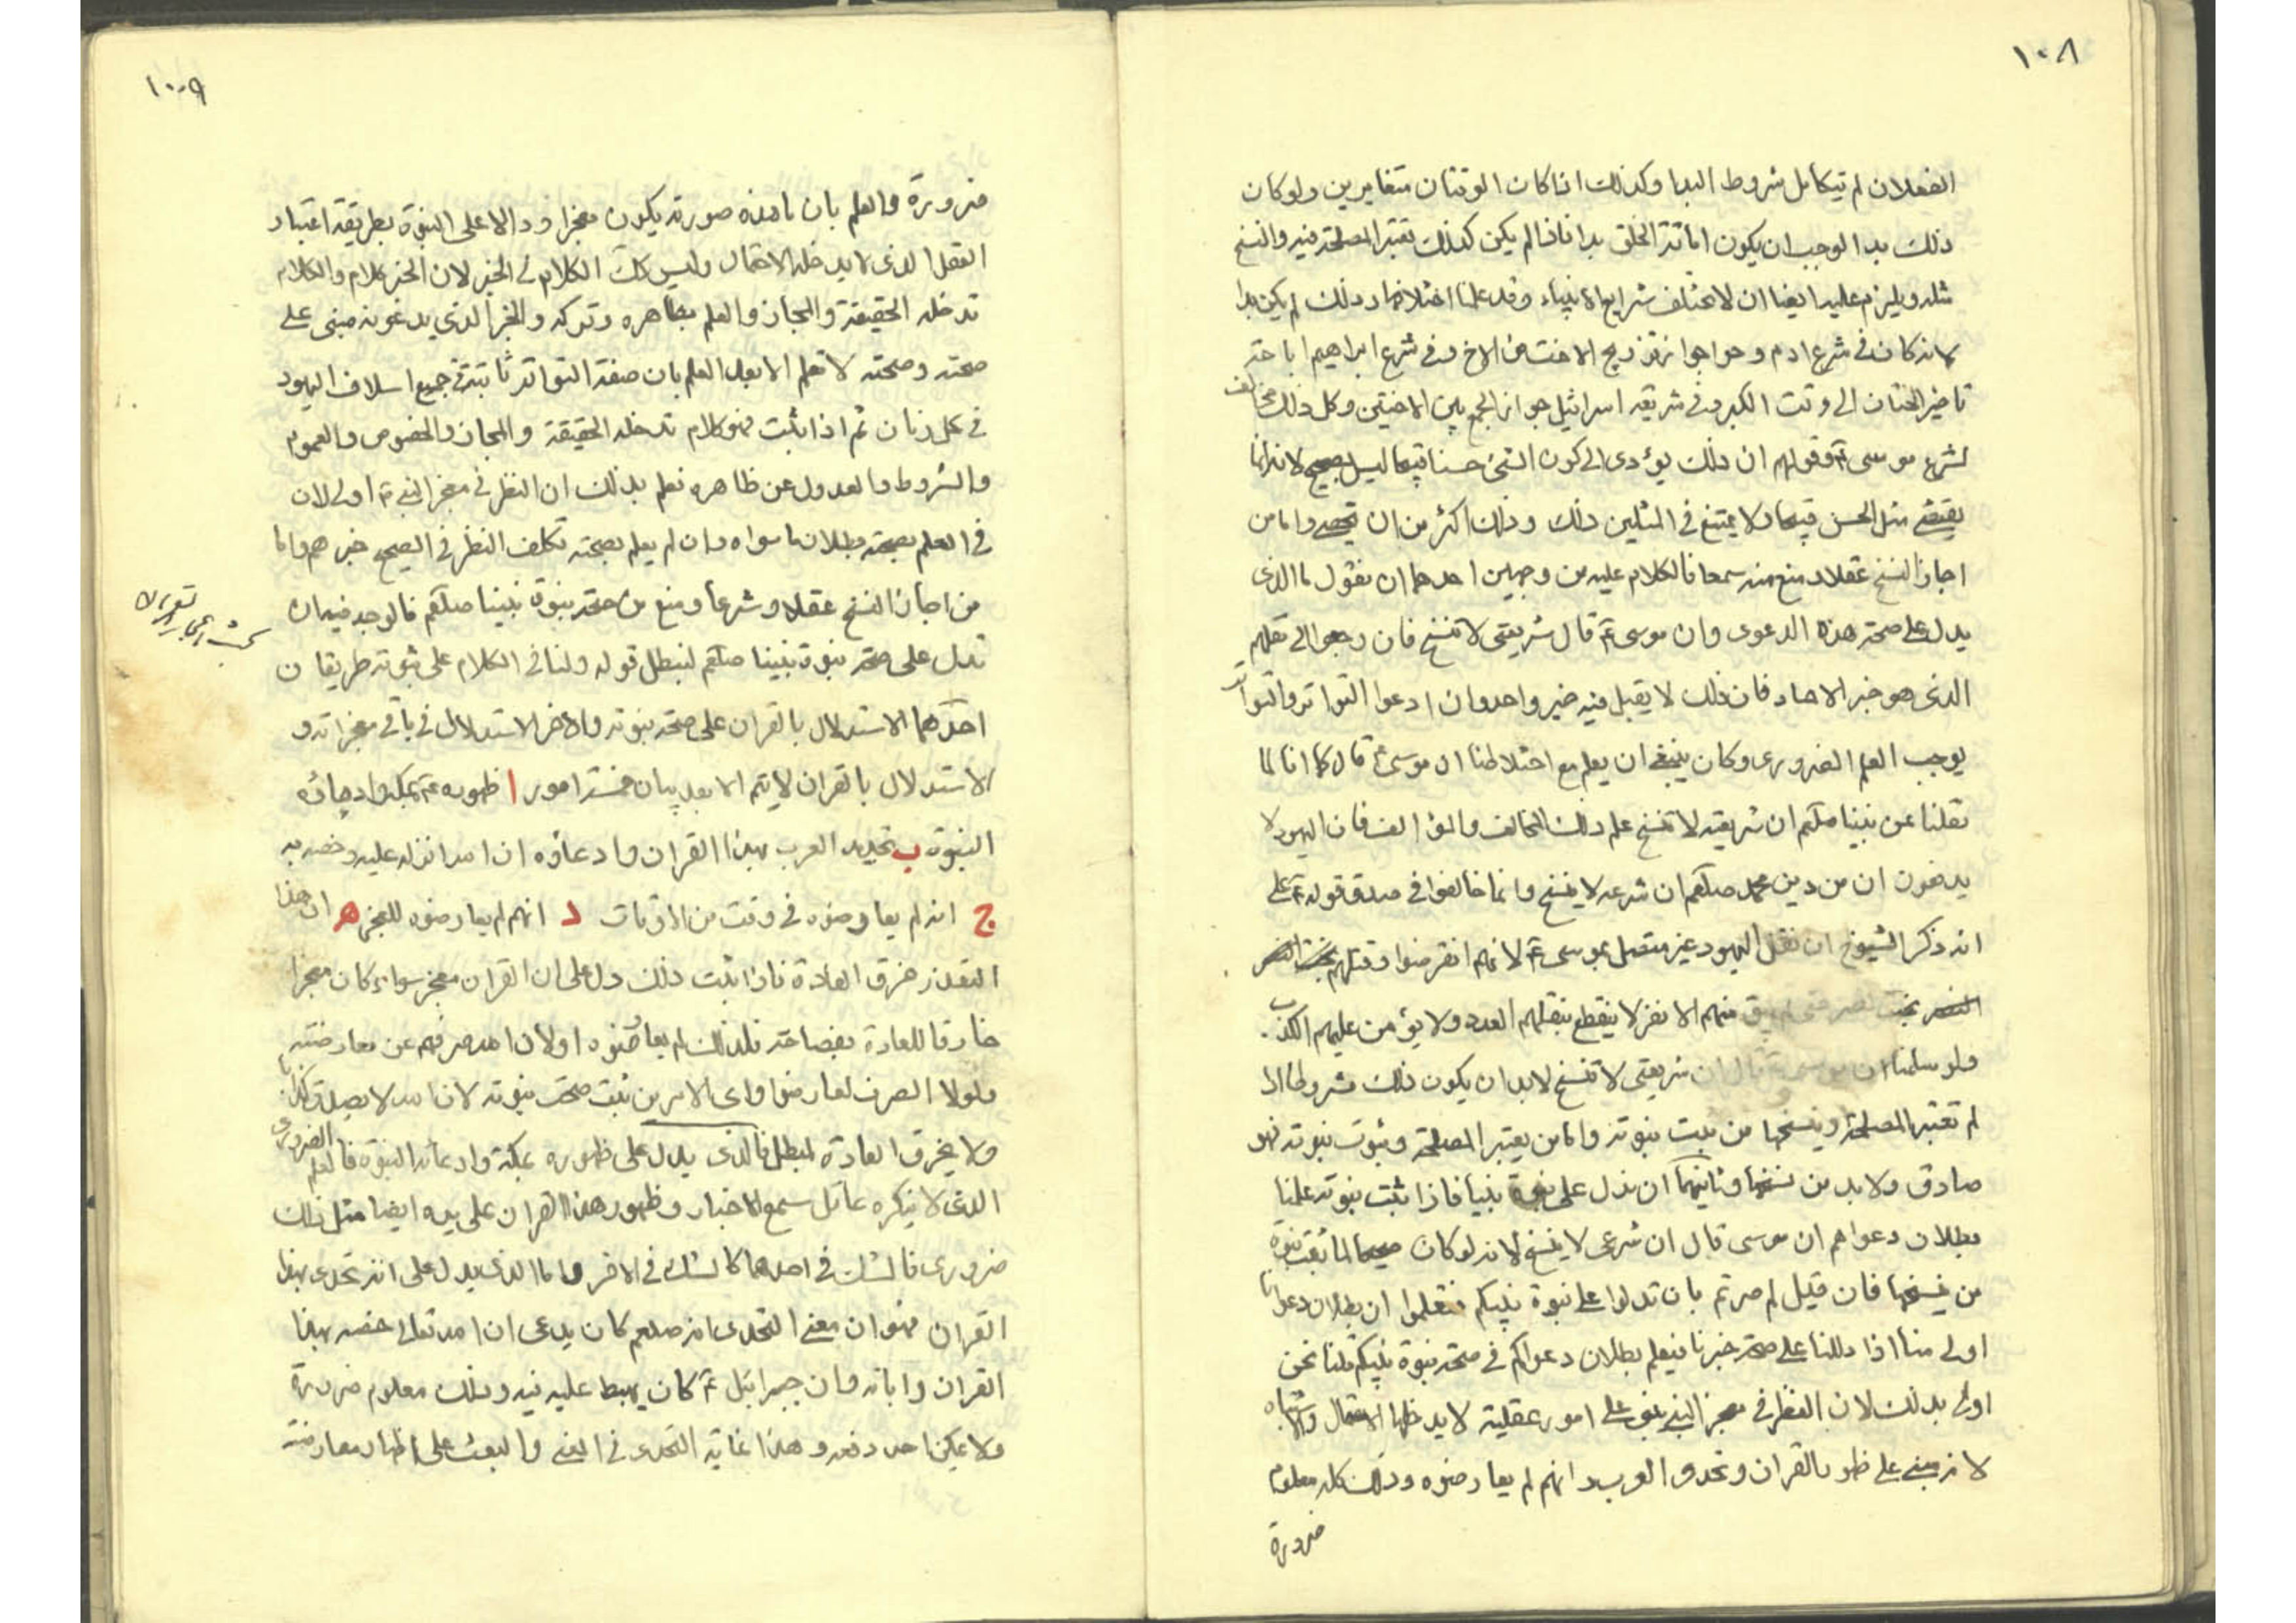 ١٠٨
الفعلان لم تتكامل شروط البدا وكذلك اذا كان الوقتان متغايرين ولو كان
ذلك بدا لوجب ان يكون اماتة الخلق بدا فاذا لم يكن كذلك تعتبر المصلحة فيه والنسخ
مثله ويلزم عليه ايضا ان لا تختلف شرايع الانبياء وقد علمنا اختلافها وذلك لم يكن بدا
لانه كان في شرع ادم وحوا جواز تزويج الاخت من الاخ وفي شرع ابراهيم اباحة
تاخير الختان الى وقت الكبر وفي شريعة اسرائيل جواز الجمع بين الاختين وكل ذلك مخالف
لشرع موسى ع وقولهم ان ذلك يؤدى الى كون الشئ حسنا قبيحا ليس بصحيح لانه انما
يقتضي مثل الحسن قبيحا ولا يمتنع في المثلين ذلك وذلك اكثر من ان تحصى واما من
اجاز النسخ عقلا ومنع منه سمعا فالكلام عليه من وجهين احدهما ان نقول ما الذى
يدل على صحة هذه الدعوى وان موسى ع قال شريعتى لا تنسخ فان رجعوا الى نقلهم
الذى هو خبر الاحاد فان ذلك لا يقبل فيه خبر واحد وان ادعوا التواتر والتواتر
يوجب العلم الضرورى وكان ينبغي ان يعلم مع اختلاطنا ان موسى ع قال كما انا لما
نقلنا عن نبينا صلعم ان شريعته لا تنسخ علم ذلك المخالف والمؤالف فان اليهود لا
يدفعون ان من دين محمد صلعم ان شرعه لا ينسخ وانما خالفوا في صدق قوله ع على
انه ذكر الشيوخ ان نقل اليهود غير متصل بموسى ع لانهم انقرضوا وقتلهم
بخت نصر حتى لم يبق منهم الا نفر لا ينقطع بنقلهم العدد ولا يؤمن عليهم الكذب
ولو سلمنا ان موسى ع قال ان شريعتى لا تنسخ لابد ان يكون ذلك مشروطا اذا
لم تعتبر المصلحة وينسخها من ثبت نبوته واما من يعتبر المصلحة وثبوت نبوته فهو
صادق ولا بد من نسخها وثانيهما ان ندل على نبوة نبينا فاذا ثبت نبوته علمنا
بطلان دعواهم ان موسى قال ان شرعى لا ينسخ لانه لو كان صحيحا لما ثبت نبوة
من ينسخها فان قيل لم صرتم بان تدلوا على نبوة نبيكم فتعلموا ان بطلان دعوانا
اولى منا اذا دللنا على صحة خبرنا فيعلم بطلان دعواكم في صحة نبوة نبيكم قلنا نحن
اولى بذلك لان النظر في معجز النبي مبني على امور عقلية لا يدخلها الاحتمال والاشتباه
لانه مبني على ظهوره بالقران وتحدى العرب وانهم لم يعارضوه وذلك كله معلوم
ضرورة
١٠٩
ضرورة والعلم بان ما هذه صورته يكون معجزا ودالا على النبوة بطريقة اعتبار
العقل الذى لا يدخله الاحتمال وليس كك الكلام في الخبر لان الخبر كلام والكلام
تدخله الحقيقة والمجاز والعلم بظاهره وتركه والخبر الذي يدعونه مبنى على
صحته وصحته لا تعلم الا بعد العلم بان صفة التواتر ثابتة في جميع اسلاف اليهود
في كل زمان ثم اذا ثبت فهو كلام تدخله الحقيقة والمجاز والخصوص والعموم
والشروط والعدول عن ظاهره نعلم بذلك ان النظر في معجز النبي ع اولى لان
في العلم بصحته بطلان ما سواه وان لم يعلم بصحته تكلف النظر في الصحيح خبرهم واما
من اجاز النسخ عقلا وشرعا ومنع من صحة نبوة نبينا صلعم فالوجه فيه ان
ندل على صحة نبوة نبينا صلعم لنبطل قوله ولنا في الكلام على ثبوته طريقان
احدهما الاستدلال بالقران على صحة نبوته والاخر الاستدلال في باقي معجزاته و
الاستدلال بالقران لا يتم الا بعد بيان خمسة امور ا ظهوره ع بمكة وادعاؤه
النبوة ب تحديه العرب بهذا القران وادعاؤه ان الله انزله عليه وخصه به
ج انه لم يعارضوه في وقت من الاوقات د انهم لم يعارضوه للعجز ه ان هذا
التعذر خرق العادة فاذا ثبت ذلك دل على ان القران معجز سواء كان معجزا
خارقا للعادة بفصاحته فلذلك لم يعارضوه او لان الله صرفهم عن معارضته
ولولا الصرف لعارضوا واى الامرين ثبت صحت نبوته لان الله لا يصدق كذابا
ولا يخرق العادة لمبطل فالذى يدل على ظهوره بمكة وادعائه النبوة فالعلم الضرورى
الذى لا ينكره عاقل سمع الاخبار وظهور هذا القران على يده ايضا مثل ذلك
ضرورى فالشك في احدهما كالشك في الاخر واما الذى يدل على انه تحدى بهذا
القران فهو ان معنى التحدى انه صلعم كان يدعى ان الله تعالى خصه بهذا
القران واياته وان جبرائيل ع كان يهبط عليه فيه وذلك معلوم ضرورة
ولا يمكن احد دفعه وهذا غاية التحدى في المعنى والبعث على اظهار معارضته